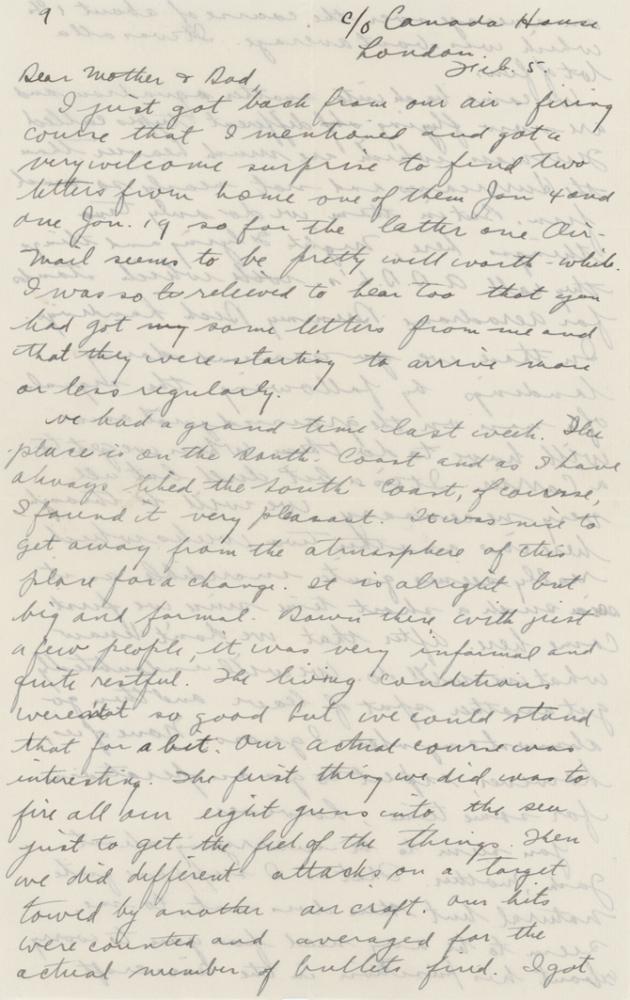 9
c/o Canada House
London.
Feb. 5.
Dear Mother & Dad,
I just got back from our air firing
course that I mentioned and got a
very welcome surprise to find two
letters from home one of them Jan 4 and
one Jan. 19 so for the latter one Air-
mail seems to be pretty well worth-while.
I was so relieved to hear too that you
had got my some letters from me and
that they were starting to arrive more
or less regularly.
We had a grand time last week. The
place is on the South Coast and as I have
always liked the South Coast, of course,
I found it very pleasant. It was nice to
get away from the atmosphere of this
place for a change. It is alright but
big and formal. Down there with just
a few people, it was very informal and
quite restful. The living conditions
were not so good but we could stand
that for a bit. Our actual course was
interesting. The first thing we did was to
fire all our eight guns into the sea
just to get the feel of the things. Then
we did different attacks on a target
towed by another aircraft. Our hits
were counted and averaged for the
actual number of bullets fired. I got